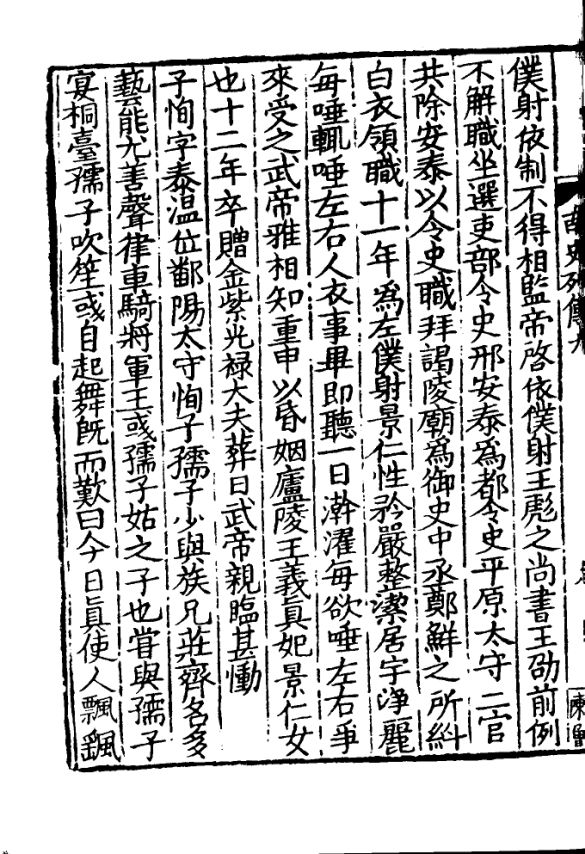 僕射依制不得相監帝啓依僕射王彪之尚書王劭前例
不解職坐選吏部令史邢安泰爲都令史平原太守二官
共除安泰以令史職拜謁陵廟爲御史中丞鄭鮮之所糾
白衣領職十一年爲左僕射景仁性矜嚴整潔居宇淨麗
每唾輒唾左右人衣事畢即聽一日澣濯每欲唾左右爭
來受之武帝雅相知重申以昏姻廬陵王義眞妃景仁女
也十二年卒贈金紫光禄大夫葬日武帝親臨甚慟
子恂字泰温位鄱陽太守恂子孺子少與族兄莊齊名多
藝能尤善聲律車騎將軍王彧孺子姑之子也甞與孺子
宴桐臺孺子吹笙彧自起舞旣而歎曰今日眞使人飄颻